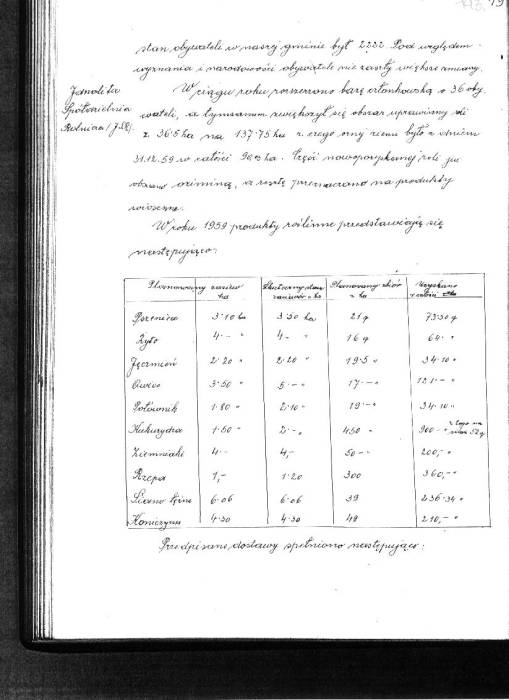 stan obywateli w naszej gminie był 2222. Pod względem
wyznania i narodowości obywateli nie zaszły większe zmiany.
Jednolita
Spółdzielnia
Rolnicza /J.S.R/
W ciągu roku poszerzono bazę członkowską o 36 oby
wateli, a tymsamem zwiększył się obszar uprawianej roli
z 36.5 ha na 137.75 ha z czego ornej ziemi było z dniem
31.12.59 w całości 90 ha. Część nowopozyskanej roli już
obsiano oziminą, a resztę przeznaczono na produkty
wiosenne.
W roku 1959 produkty roślinne przedstawiają się
następująco:
Planowany zasiew ha Skuteczny stan zasiewów w ha Planowany zbiór z ha Uzyskano w całości
Pszenica 3.10 ha 3.50 ha 21 q 73.50 q
Żyto 4.- " 4.- " 16 q 64.- "
Jęczmień 2.20 " 2.20 " 19.5 " 34.10 "
Owies 3.50 " 5.- " 17.- " 121.- "
Potownik 1.80 " 2.10 " 19.- " 34.10 "
Kukurydza 1.50 " 2.- " 450 " 900.- " z tego na 52 q
Ziemniaki 4.- 4,- 50.- 200,- "
Rzepa 1,- 1.20 300 360,- "
Siano łąkowe 6.06 6.06 39 236.34 "
Koniczyna 4.30 4.30 48 210,- "
Przedpisane dostawy spełniono następująco: